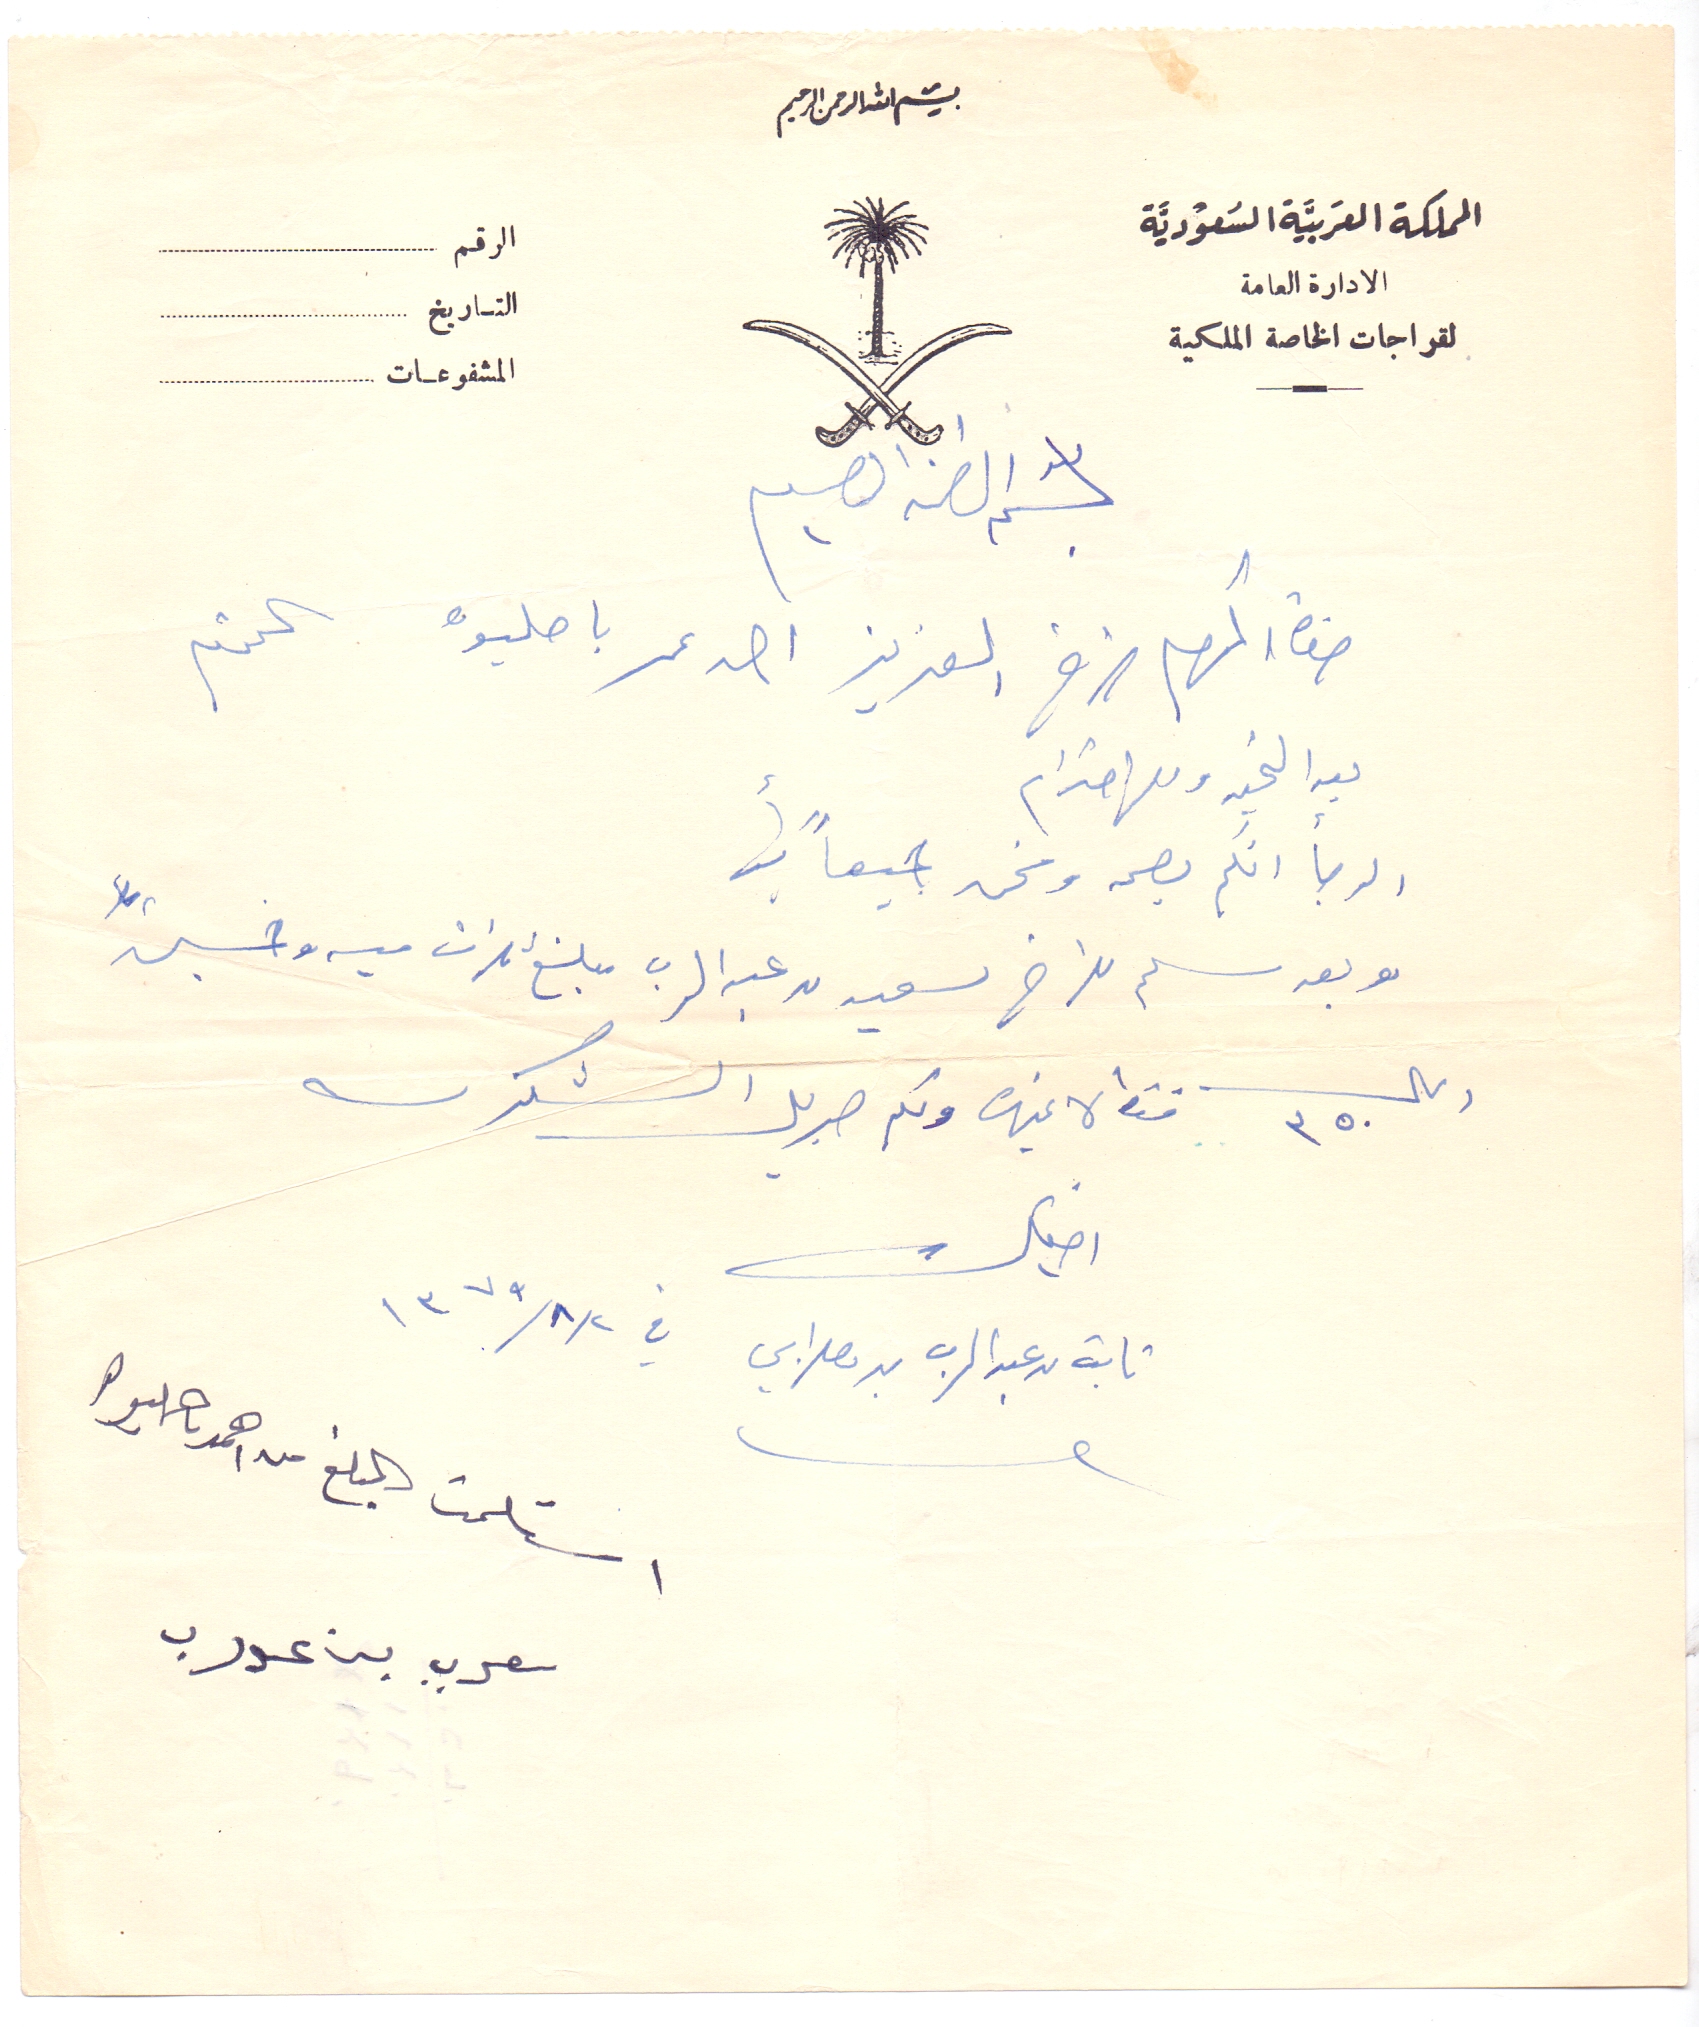 بسم الله الرحمن الرحيم
المملكة العربية السعودية
الادارة العامة
لقراجات الخاصة الملكية
الرقم
التاريخ
المشفوعات
بسم الله الرحمن الرحيم
حضرة المكرم الأخ العزيز احمد عمر باصليوه المحترم
بعد التحيه والاحترام
الرجأ انكم بصحه ونحن جميعاً
وبعد سلم للأخ سعيد بن عبدالرب مبلغ ثلاث ميه وخمسين
ريال ٣٥٠ فقط لاغيرها ولكم جزيل الشكر
اخيكم
ثابت بن عبدالرب بن
في ٢/٨/١٣٧٩
استلمت المبلغ من احمد باصليوه
بن